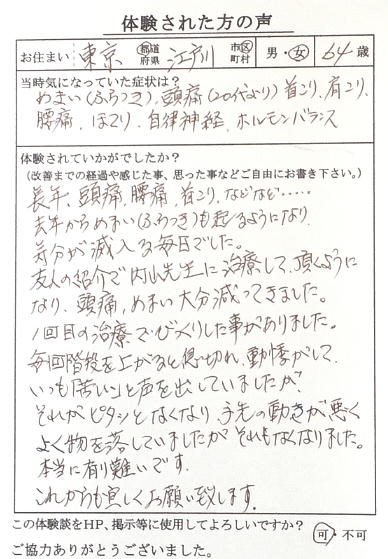 体験された方の声
お住まい 東京 都道府県 江戸川 市区町村 男・女 64歳
当時気になっていた症状は?
めまい(ふらつき)、頭痛(20代より) 首こり、肩こり、
腰痛、ほてり、自律神経、ホルモンバランス
体験されていかがでしたか?
(改善までの経過や感じた事、思った事などご自由にお書き下さい。)
長年、頭痛、腰痛、首こり、などなど・・・・・
去年からめまい(ふらつき)も起るようになり、
気分が滅入る毎日でした。
友人の紹介で内山先生に治療して、頂くように
なり、頭痛、めまい大分減ってきました。
1回目の治療でびっくりした事がありました。
毎回階段を上がると息切れ、動悸がして、
いつも「苦しい」と声を出していましたが、
それがピタッとなくなり、手先の動きが悪く
よく物を落していましたがそれもなくなりました。
本当に有り難いです。
これからも宜しくお願い致します。
この体験談をHP、掲示等に使用してよろしいですか? 可・不可
ご協力ありがとうございました。